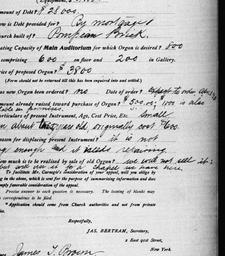 Amount of Debt? $28000.
How is Debt provided for? By mortgages
Church built of? Pompeian Brick.
Seating Capacity of Main Auditorium for which Organ is desired? 800
Comprising 600 on floor and 200 in Gallery.
Price of proposed Organ? $3800
(Form should not be returned till this has been inquired into and settled.)
Has new Organ been ordered? no Date of order?
Amount already raised toward purchase of Organ? $500.00; 100 is also
in promises.
Particulars of present Instrument, Age, Cost Price, Etc. Small
about years old originally cost 600
Reason for displacing present Instrument? it is not
enough and it needs repairing
How much is to be realized by sale of old Organ? we will not sell it;
but will use it to a chapel we have here
To facilitate Mr. Carnegie's consideration of your appeal, will you oblige by
the chart, which is sent for the purpose of summarizing information and does
imply favorable consideration of the appeal.
Precise answer to each question is necessary. The issuing of blanks may
correspondence to be filed.
Application should come from Church authorities and not from private
Respectfully,
JAS. BERTRAM, Secretary,
2 East 91st Street,
New York.
James T. Brown